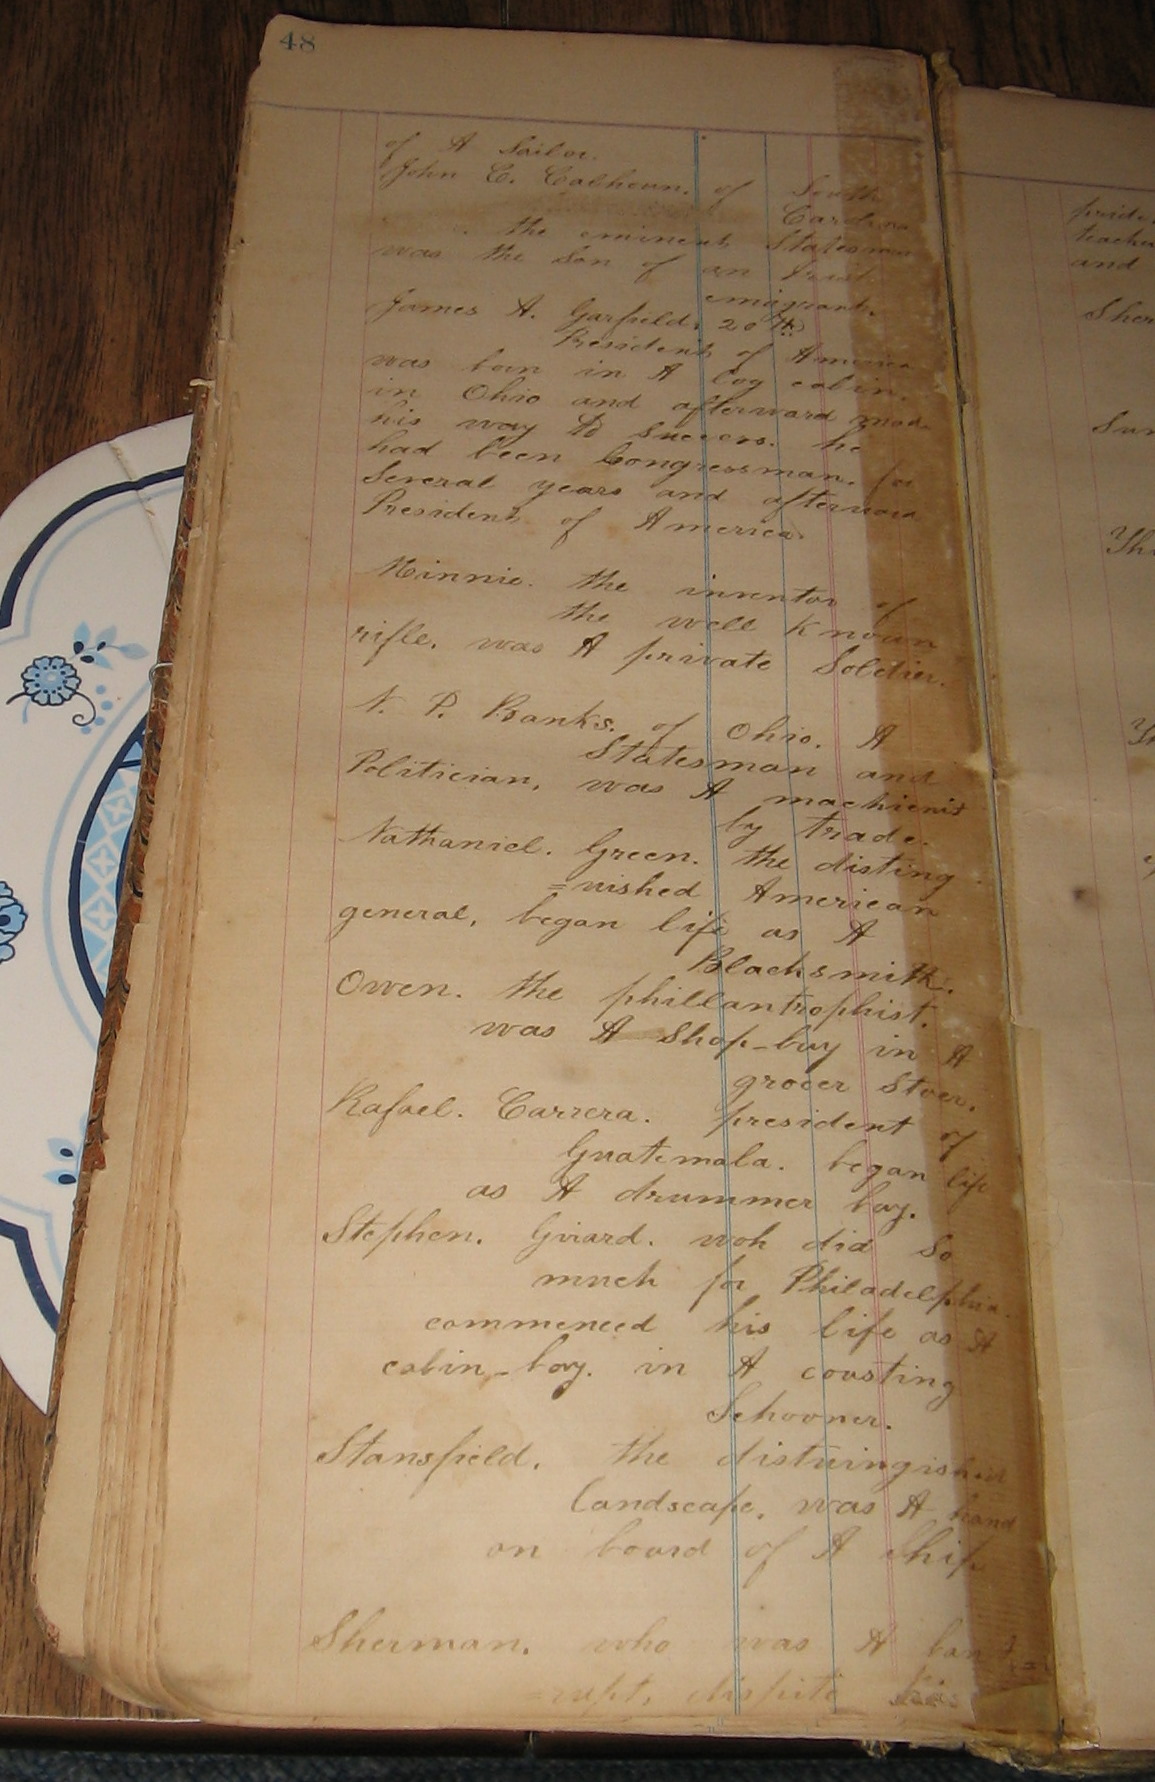 48
of A Sailor.
John C. Calhoun. of South
Carolina
the eminent Statesman
was the Son of an Irish
emigrant.
James A. Garfield. 20th
President of America
was born in A log cabin.
in Ohio and afterward mad
his way to success. he
had been Congressman. for
Several years and afterward
President of America.
Minnie. the inventor of
the well known
rifle. was A private Soldier.
N. P. Banks. of Ohio. A
Statesman and
Politician, was A machienist
by trade.
Nathaniel. Green. the disting
=uished American
general, began life as A
Blacksmith.
Owen. the phillantrophist.
was A Shop-boy in A
grocer Stoer.
Rafael. Carrera. president of
Guatemala. began life
as A drummer boy.
Stephen. Girard. woh did So
much for Philadelphia.
commenced his life as A
cabin-boy. in A coasting
Schooner.
Stansfield. the distuingished
Landscape. was A hand
on board of A Ship
Sherman. who was A bank=
=rupt, dispite
pride
teache
and
Sher
Sum